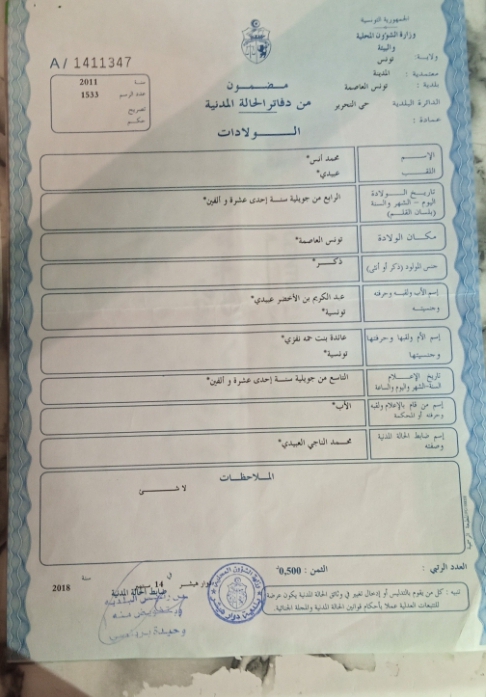 الجمهورية التونسية
وزارة الشؤون المحلية
والبيئة
ولاية : تونس
معتمدية : المدينة
بلدية : تونس العاصمة
الدائرة البلدية حي التحرير
عمادة :
A/ 1411347
سنة 2011
عدد الرسم 1533
تصريح
حكم
مضمون
من دفاتر الحالة المدنية
الولادات
الإسم محمد أنس*
اللقب عبيدي*
تاريخ الولادة
اليوم - الشهر والسنة
(بلسان القلم)
الرابع من جويلية سنة إحدى عشرة و ألفين*
مكان الولادة تونس العاصمة*
جنس المولود (ذكر أو أنثى) ذكر*
إسم الأب ولقبه وحرفته عبد الكريم بن الأخضر عبيدي*
وجنسيته تونسية*
إسم الأم ولقبها وحرفتها عائدة بنت حمه نفزي*
وجنسيتها تونسية*
تاريخ الإعلام
السنة-الشهر واليوم والساعة
التاسع من جويلية سنة إحدى عشرة و ألفين*
إسم من قام بالإعلام ولقبه
وحرفته أو المحكمة
الأب*
إسم ضابط الحالة المدنية
وصفته
محمد الناجي العبيدي*
الملاحظات
لا شئ
العدد الرتبي :
الثمن : 0,500
تنبيه : كل من يقوم بالتدليس أو إدخال تغيير في وثائق الحالة المدنية يكون عرضة
للتتبعات العدلية عملا بأحكام قوانين الحالة المدنية والمجلة الجنائية.
دوار هيشر في 14 سبتمبر سنة 2018
ضابط الحالة المدنية